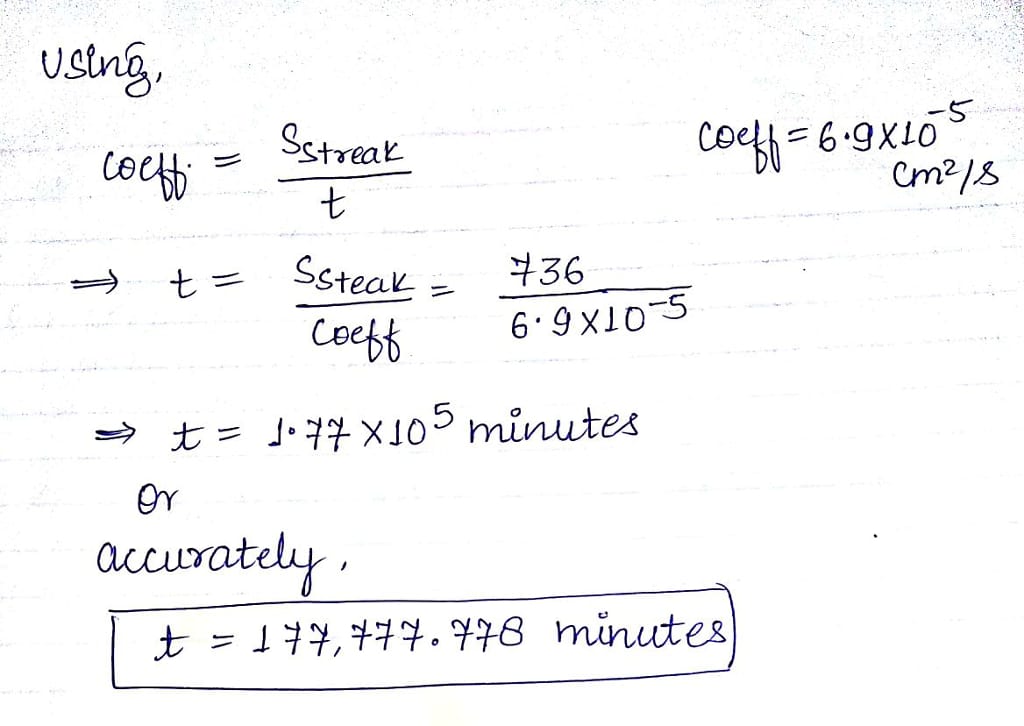 Using,
coeff. = Sstreak / t
coeff = 6.9X10^-5 cm²/s
⇒ t = Ssteak / Coeff = 736 / 6.9X10^-5
⇒ t = 1.77 X 10^5 minutes
Or
accurately,
t = 177,777.778 minutes